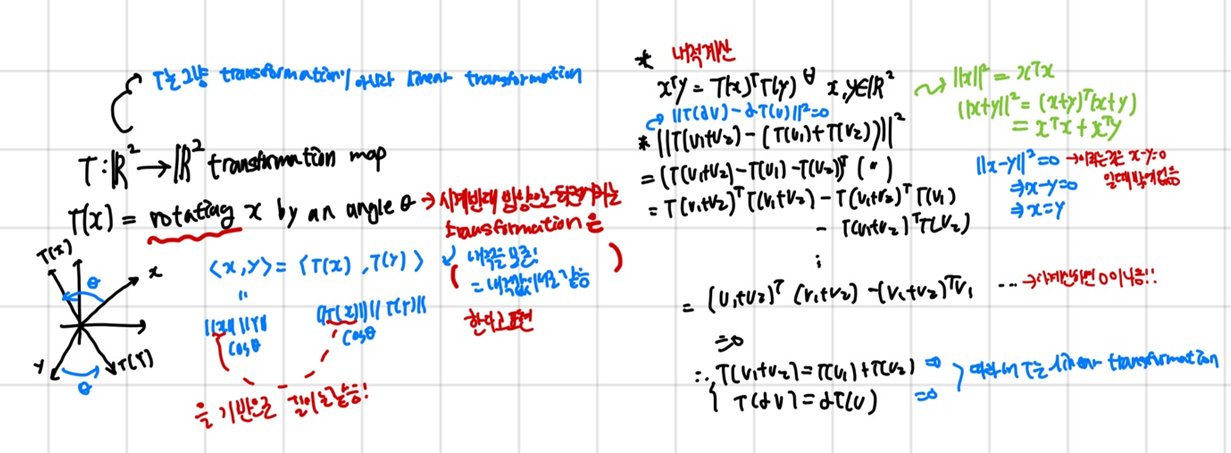 T는 그냥 transformation이 아니라 linear transformation
T : ℝ² → ℝ² transformation map
T(x) = rotating x by an angle θ → 시계반대 방향으로 되돌리는
transformation을
T(x)
θ
x
y
T(Y)
θ
<x, y> = <T(x), T(y)>
( 내적을 보존!
= 내적값이 서로 같음 )
한다고 표현
"
||x|| ||Y||
cosθ
||T(x)|| || T(Y)||
cosθ
을 기반으로 길이는 같음!
* 내적계산
xᵀy = T(x)ᵀT(y) ∀ x, y∈ℝ²
||T(αv) - αT(v)||² = 0
* ||T(v₁+v₂) - (T(v₁)+T(v₂))||²
= (T(v₁+v₂) - T(v₁) - T(v₂))ᵀ (〃)
= T(v₁+v₂)ᵀT(v₁+v₂) - T(v₁+v₂)ᵀT(v₁)
- T(v₁+v₂)ᵀT(v₂)
⋮
= (v₁+v₂)ᵀ (v₁+v₂) - (v₁+v₂)ᵀv₁ ... → 다 계산하면 0이 나옴!!
=0
∴ { T(v₁+v₂) = T(v₁)+T(v₂) ⇒
T(αv) = αT(v) ⇒
따라서 T는 linear transformation
||x||² = xᵀx
||x+y||² = (x+y)ᵀ(x+y)
= xᵀx + xᵀy
||x-y||² = 0 → 이라는 것은 x-y=0
⇒ x-y=0
⇒ x=y
일때 밖에 없음